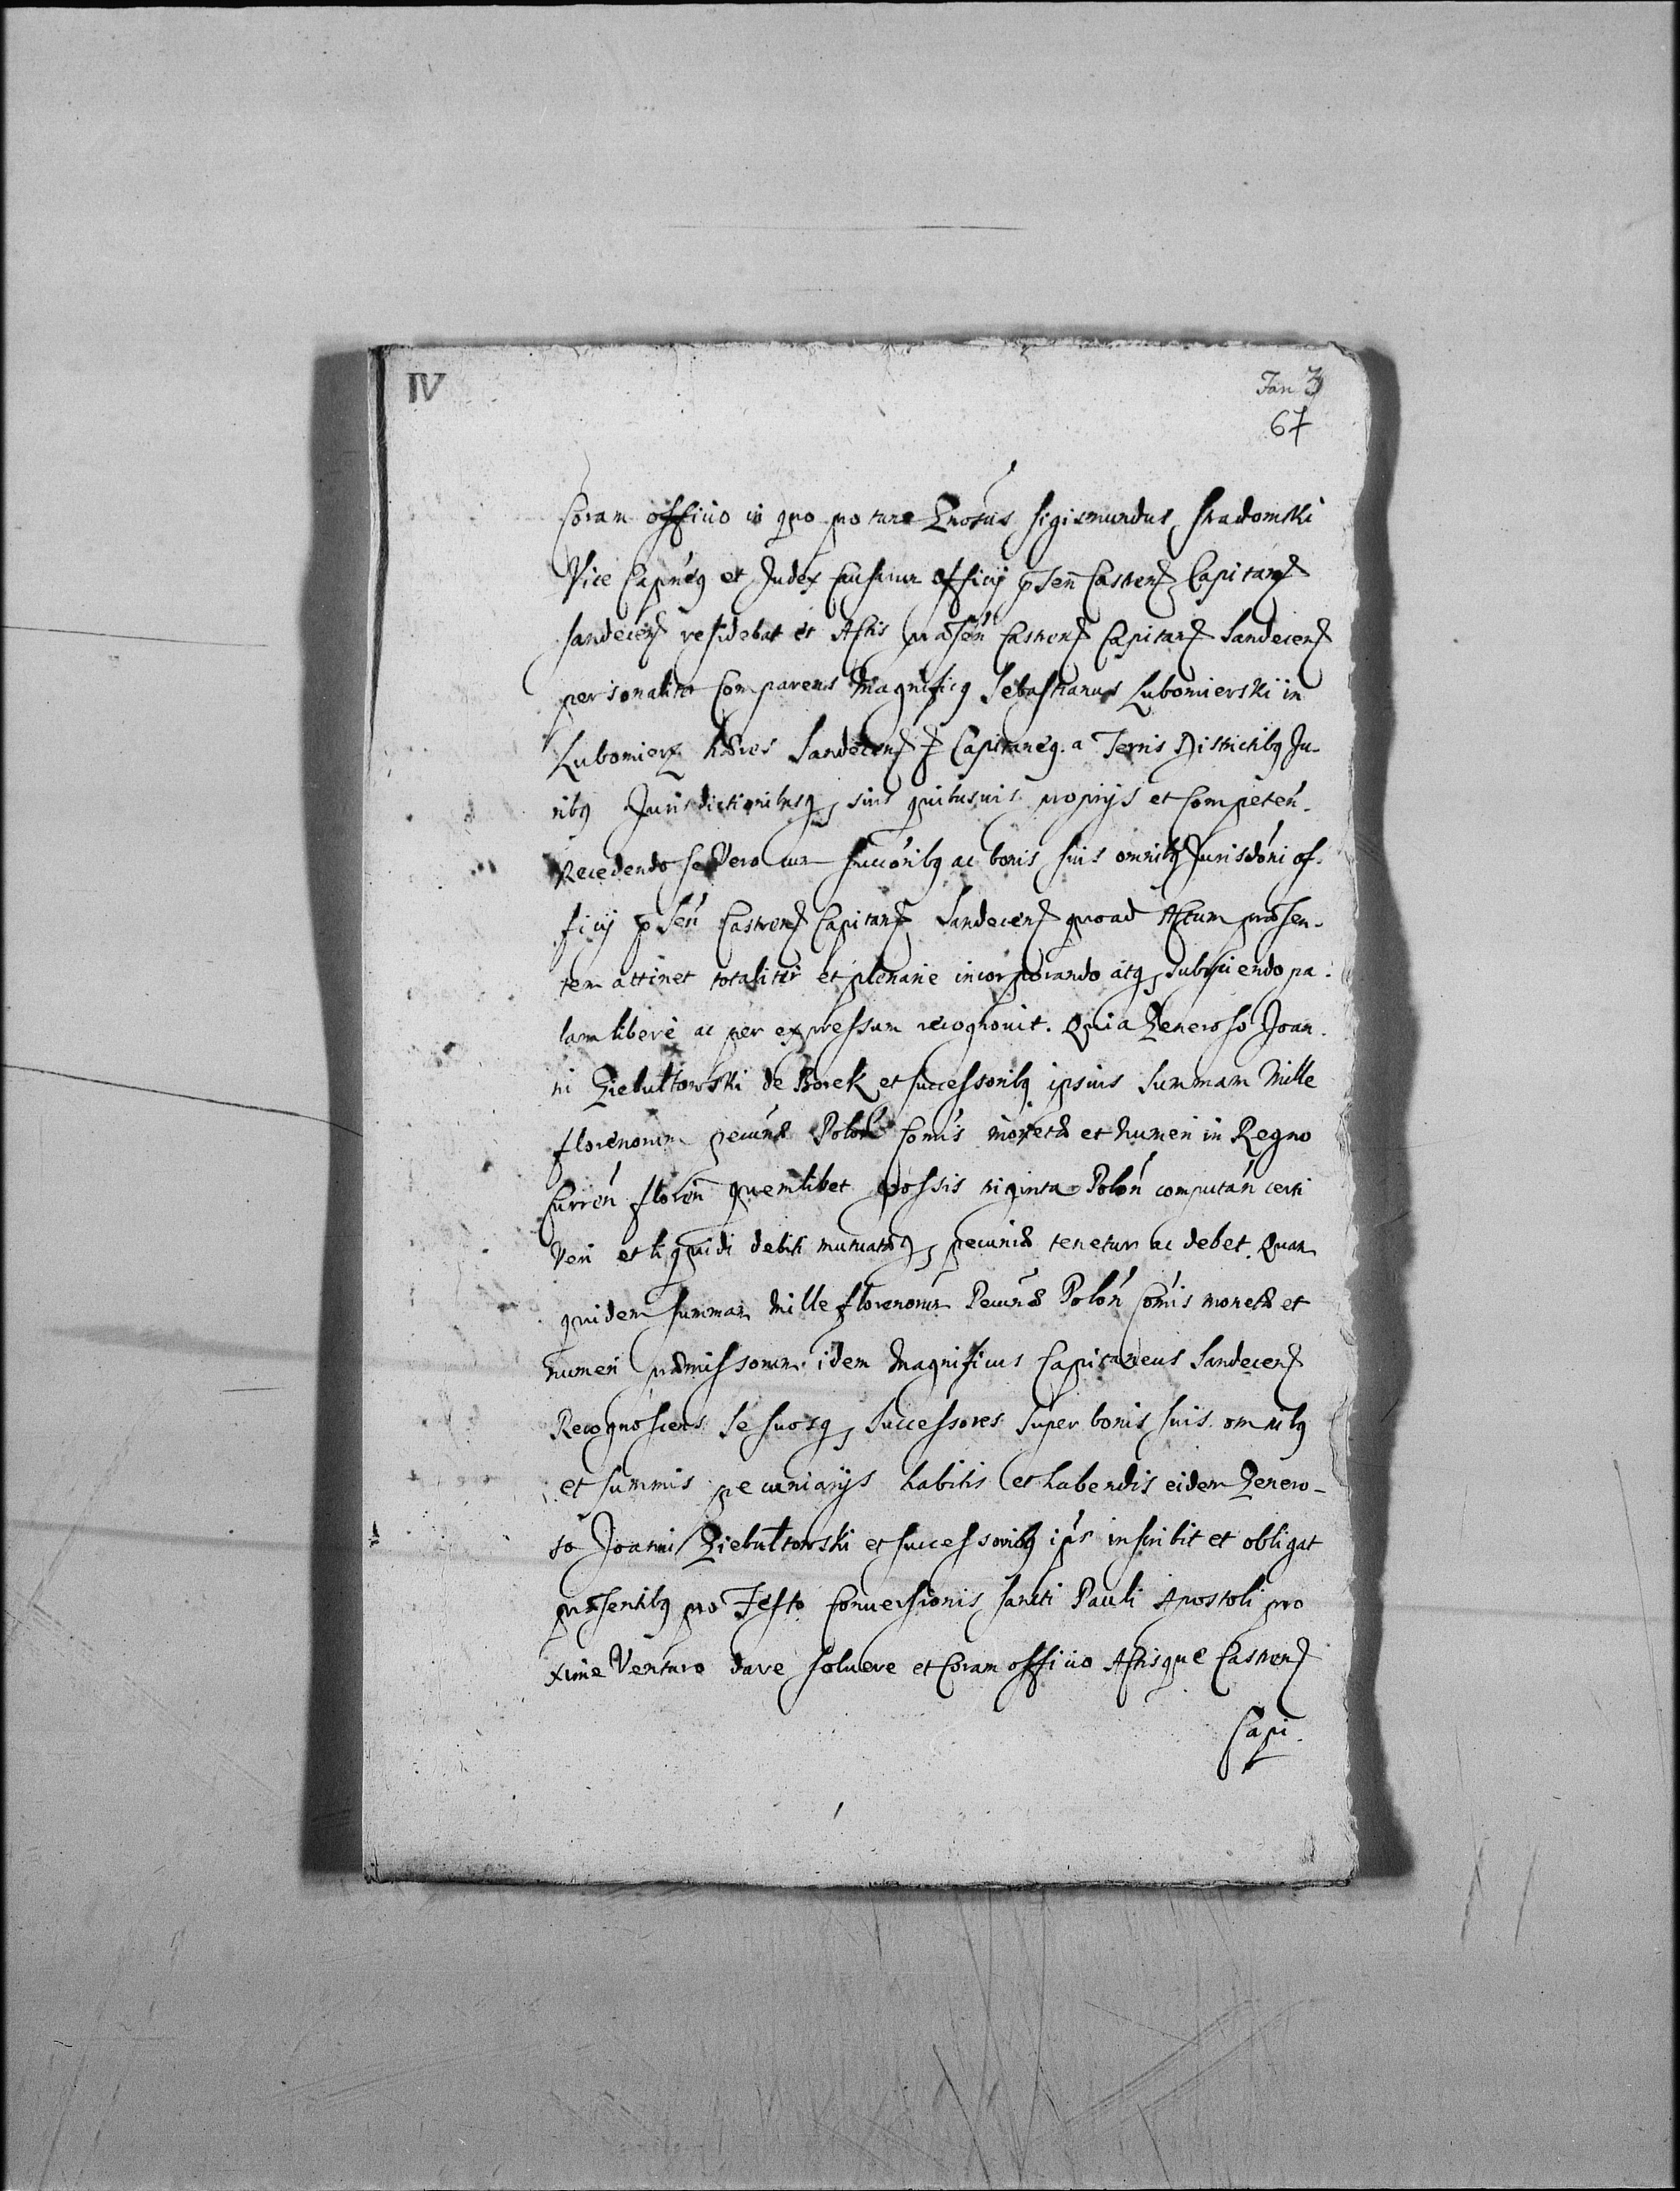 IV
Jan 3
67
Coram officio in quo pro tunc Gnosus Sigismundus Stradomski
Vice Capneus et Judex Causarum officij pñsen Castren Capitan
Sandecen residebat et Actis præsen Castren Capitan Sandecen
personaliter Comparens Magnificus Sebastianus Lubomierski in
Lubomierz hæres Sandecen Capitaneus a Terris Districtibus Ju-
ribus Jurisdictionibusq suis quibusuis proprijs et Competen.
Recedendo se vero cum succoribus ac bonis suis omnibus Jurisdoni of-
ficij pñsen Castren Capitan Sandecen quoad Actum præsen-
tem attinet totaliter et plenarie incorporando atq subijciendo pa-
lam libere ac per expressum recognouit. Quia Generoso Joan-
ni Ziebułtowski de Borek et successoribus ipsius summam Mille
florenorum pecuñæ Polon Comis monetæ et numeri in Regno
Curren floren quemlibet grossis triginta Polon computan certi
Veri et liquidi debiti mutuatæq pecuniæ tenetur ac debet. Quam
quidem summam Mille florenorum Pecunæ Polon Comis monetæ et
numeri præmissorum idem Magnificus Capitaneus Sandecen
Recognoscens se suosq successores super bonis suis omnibus
et summis pecuniarijs habitis et habendis eidem Genero-
so Joanni Ziebułtowski et successoribus ips inscribit et obligat
præsentibus pro Festo Conuersionis Sancti Pauli Apostoli pro
xime Venturo dare soluere et Coram officio Actisque Castren
Capi-